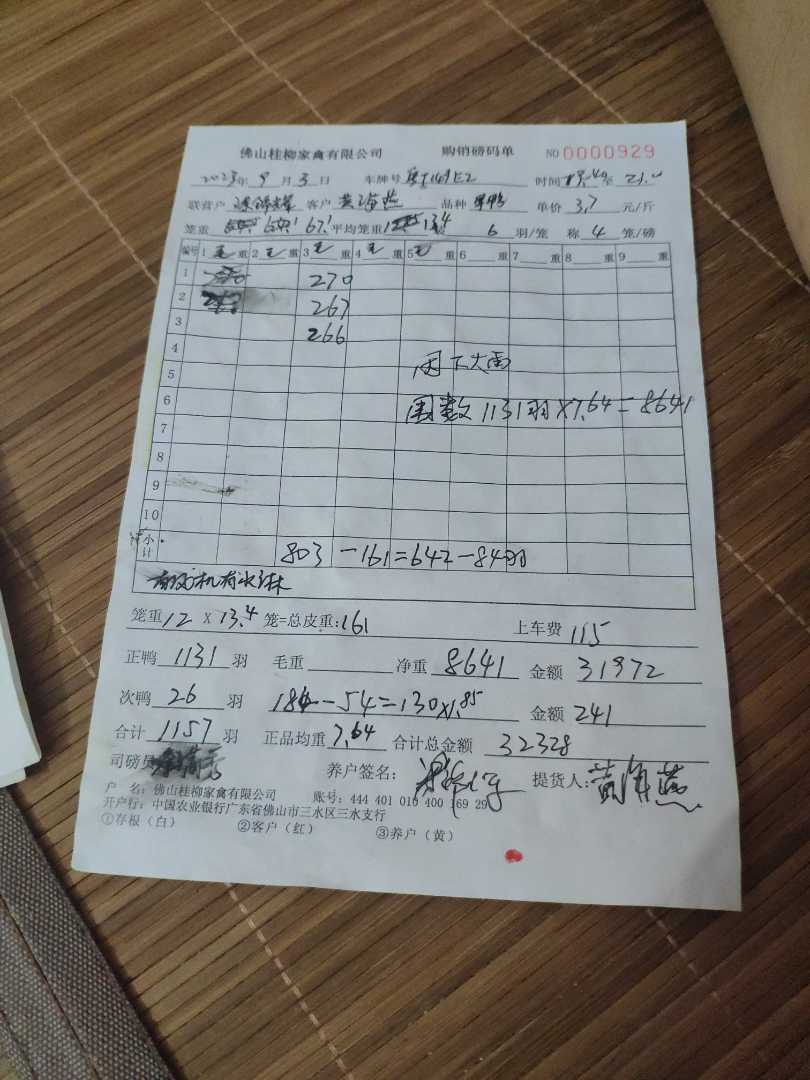 佛山桂柳家禽有限公司 购销磅码单 NO 0000929
2023年 9 月 3 日 车牌号 时间 至 21.0
联营户 客户 黄海燕 品种 单价 3.7 元/斤
笼重 67.1 平均笼重 13.4 6 羽/笼 称 4 笼/磅
编号 1 毛 重 2 毛 重 3 毛 重 4 毛 重 5 毛 重 6 重 7 重 8 重 9 重
1 270
2 267
3 266
4
因下大雨
5
围数 1131羽 X7.64=8641
6
7
8
9
10
小计 803 -161=642-84羽
笼重 12 X 13.4 笼=总皮重: 161 上车费 115
正鸭 1131 羽 毛重 净重 8641 金额 31972
次鸭 26 羽 184-54=130X1.85 金额 241
合计 1157 羽 正品均重 7.64 合计总金额 32328
司磅员 养户签名: 提货人: 黄海燕
户 名: 佛山桂柳家禽有限公司 账号: 444 401 010 400 169 29
开户行: 中国农业银行广东省佛山市三水区三水支行
①存根（白） ②客户（红） ③养户（黄）